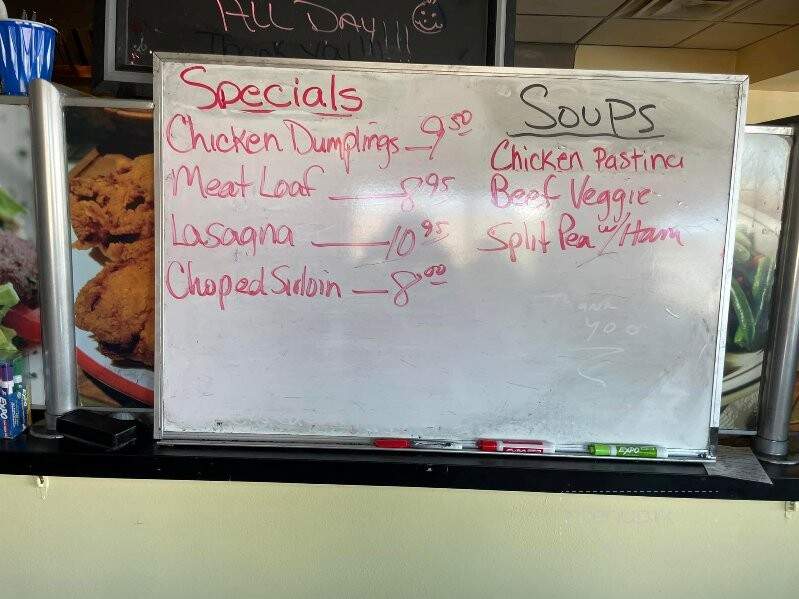 ALL DAY!
THANK YOU!!!!
Specials
Chicken Dumplings 9 50
Meat Loaf 8 95
Lasagna 10 95
Choped Sirloin 8.00
Soups
Chicken Pastina
Beef Veggie
Split Pea w/ Ham
Thank
you
EXPO
EXPO
EXPO